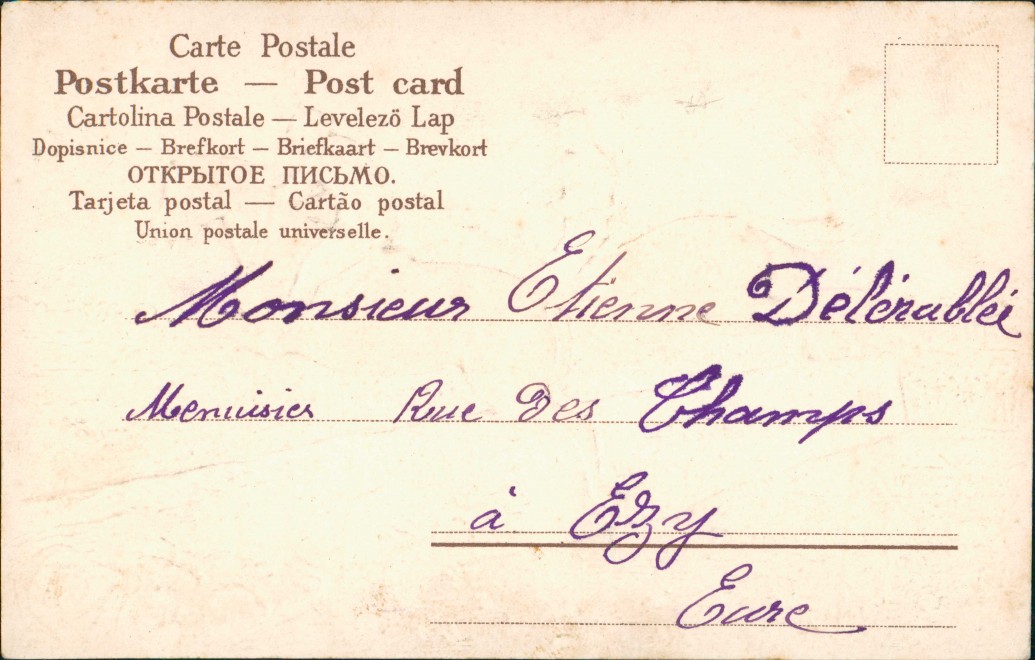 Carte Postale
Postkarte — Post card
Cartolina Postale — Levelező Lap
Dopisnice — Brefkort — Briefkaart — Brevkort
ОТКРЫТОЕ ПИСЬМО.
Tarjeta postal — Cartão postal
Union postale universelle.
Monsieur Etienne Délérablée
Menuisier Rue Des Champs
à Ezy
Eure